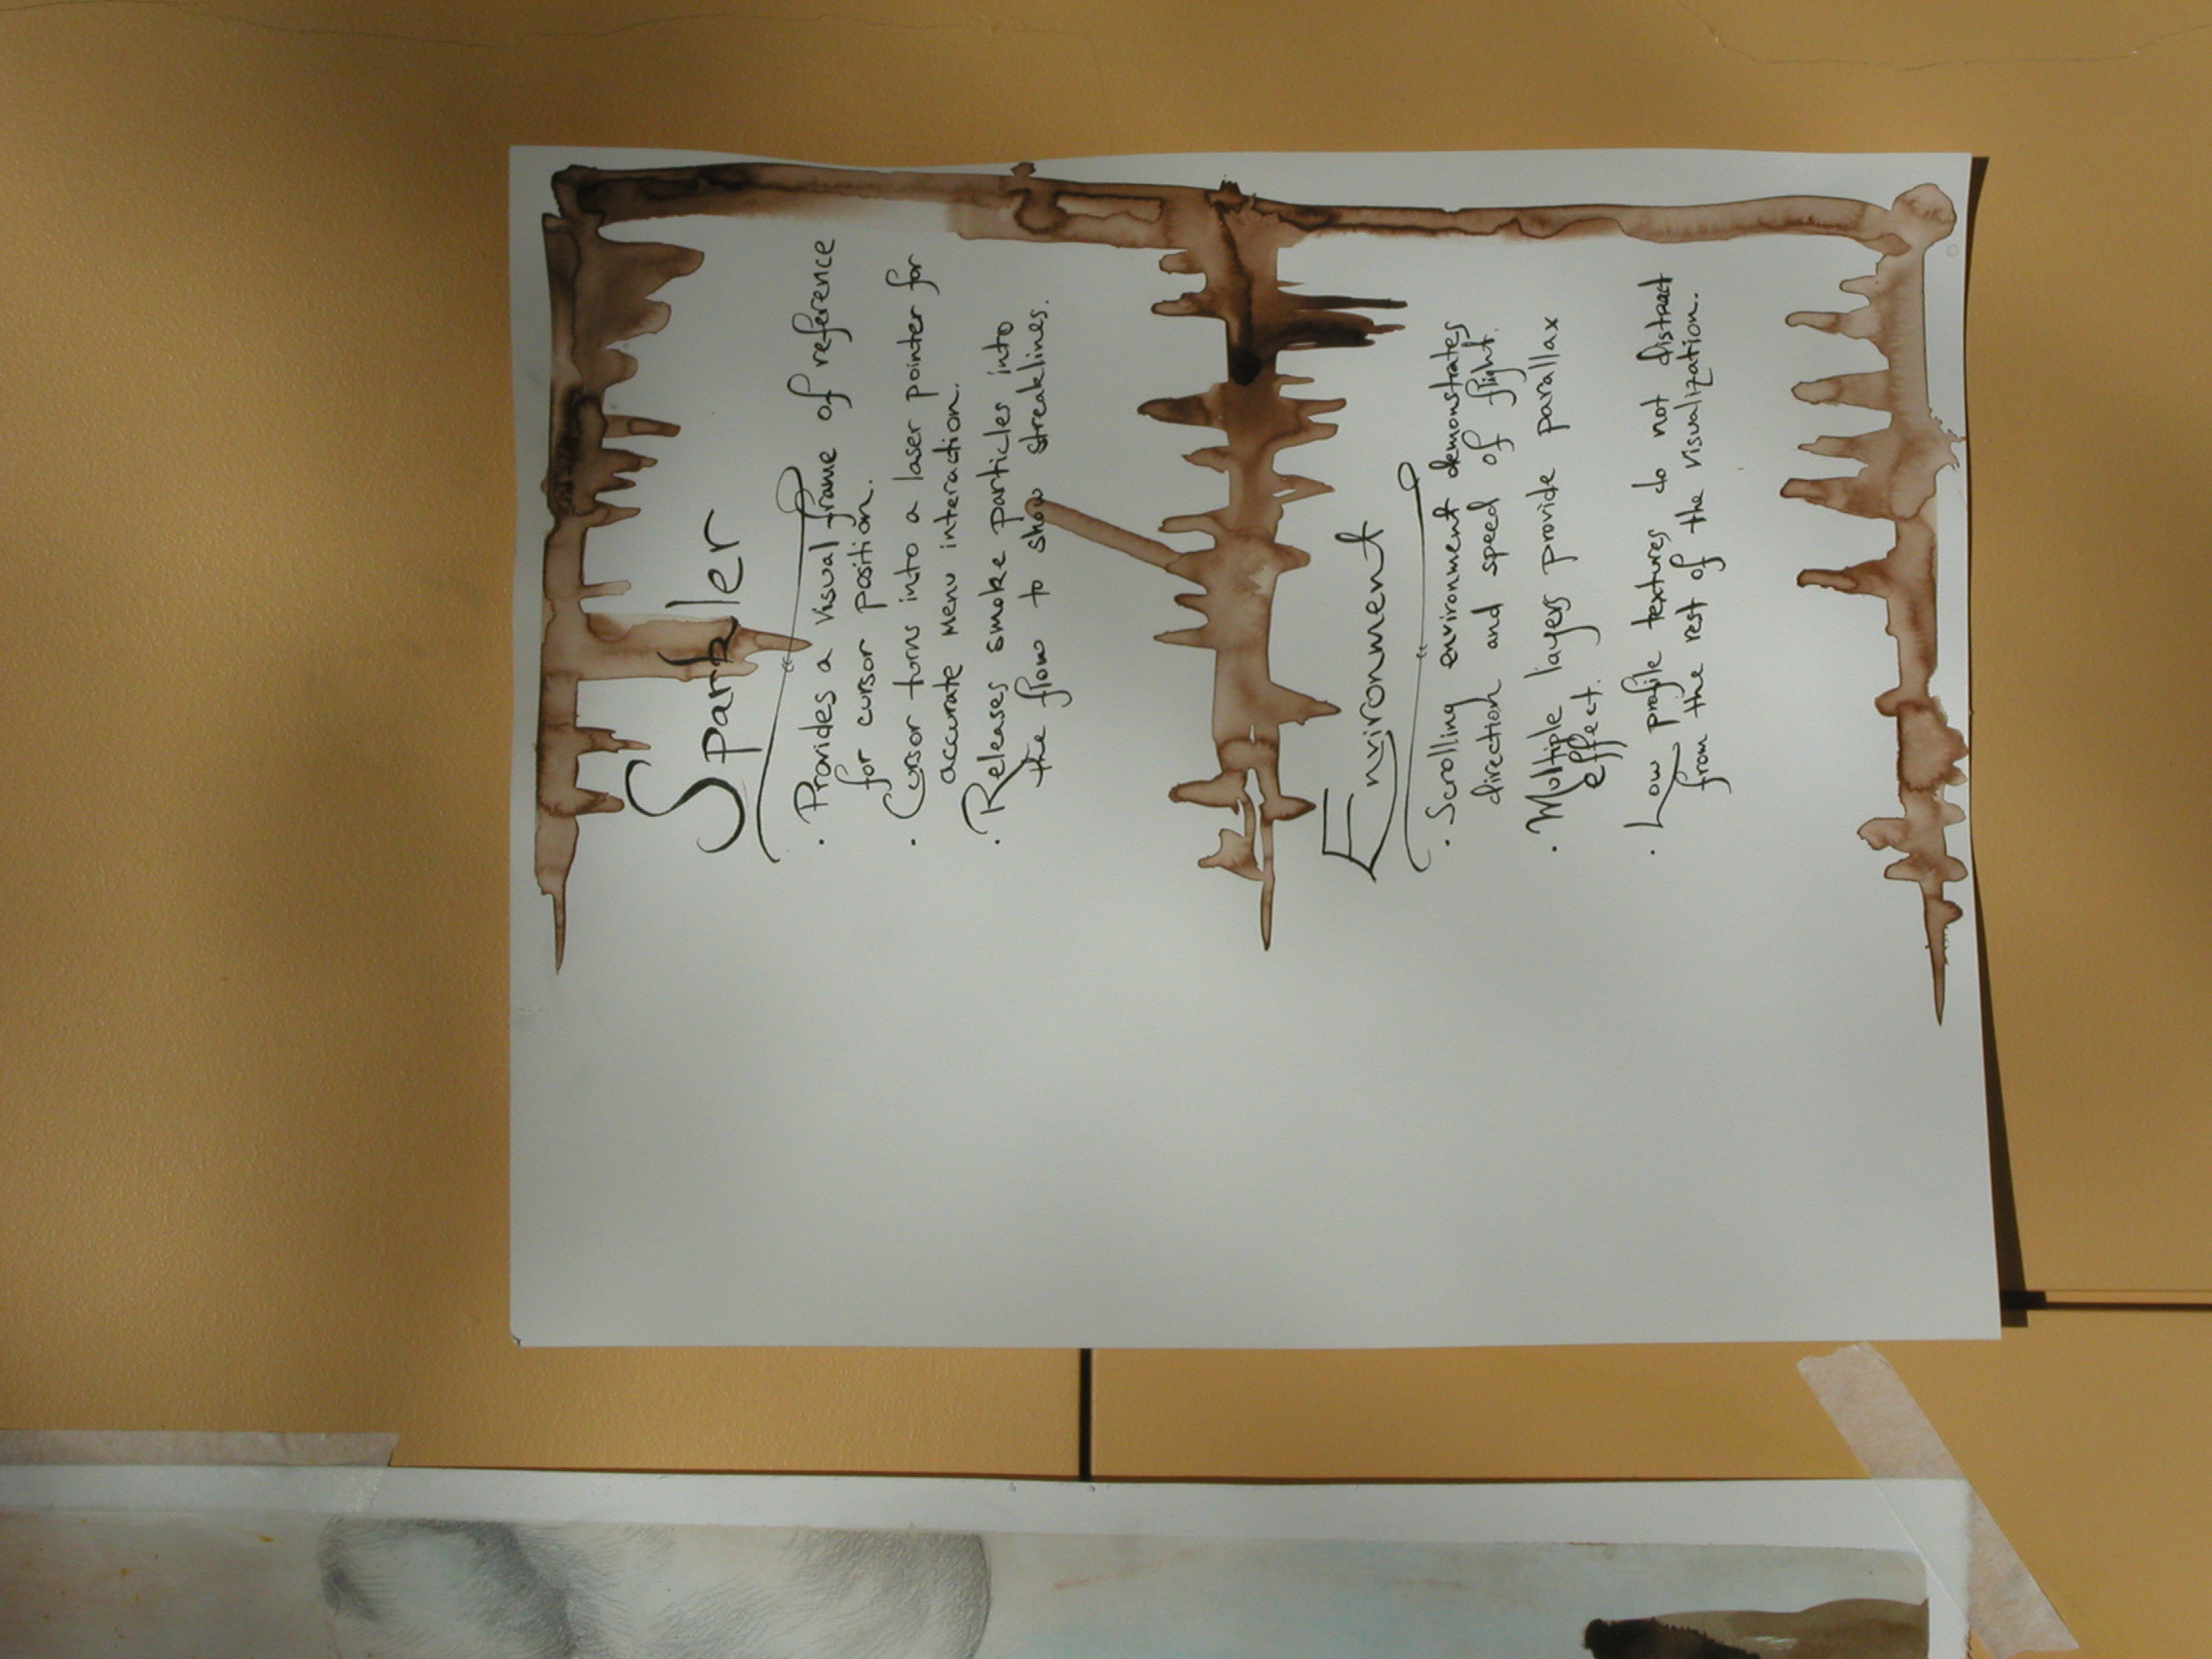 Sparkler
· Provides a visual frame of reference
for cursor position.
· Cursor turns into a laser pointer for
accurate menu interaction.
· Releases smoke particles into
the flow to show streaklines.
Environment
· Scrolling environment demonstrates
direction and speed of flight.
· Multiple layers provide parallax
effect.
· Low profile textures do not distract
from the rest of the visualization.